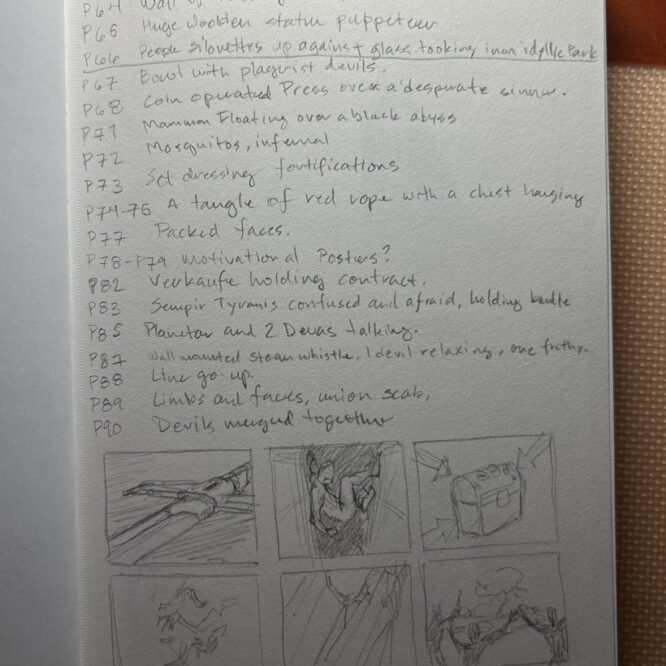 P64 Wall of
P65 Huge Wooden statue puppeteer
P66 People silouettes up against glass looking in on idyllic Park
P67 Bowl with plagerist devils.
P68 Coin operated Press over a desperate sinner.
P71 Mammon Floating over a black abyss
P72 Mosquitos, infernal
P73 Set dressing fortifications
P74-75 A tangle of red rope with a chest hanging
P77 Packed faces.
P78-P79 Motivational Posters?
P82 Verkaufe holding contract.
P83 Sempir Tyranis confused and afraid, holding
P85 Planetar and 2 Devas talking.
P87 Wall mounted steam whistle, 1 devil relaxing, one
P88 Line go up.
P89 Limbs and faces, union scab,
P90 Devils merged together